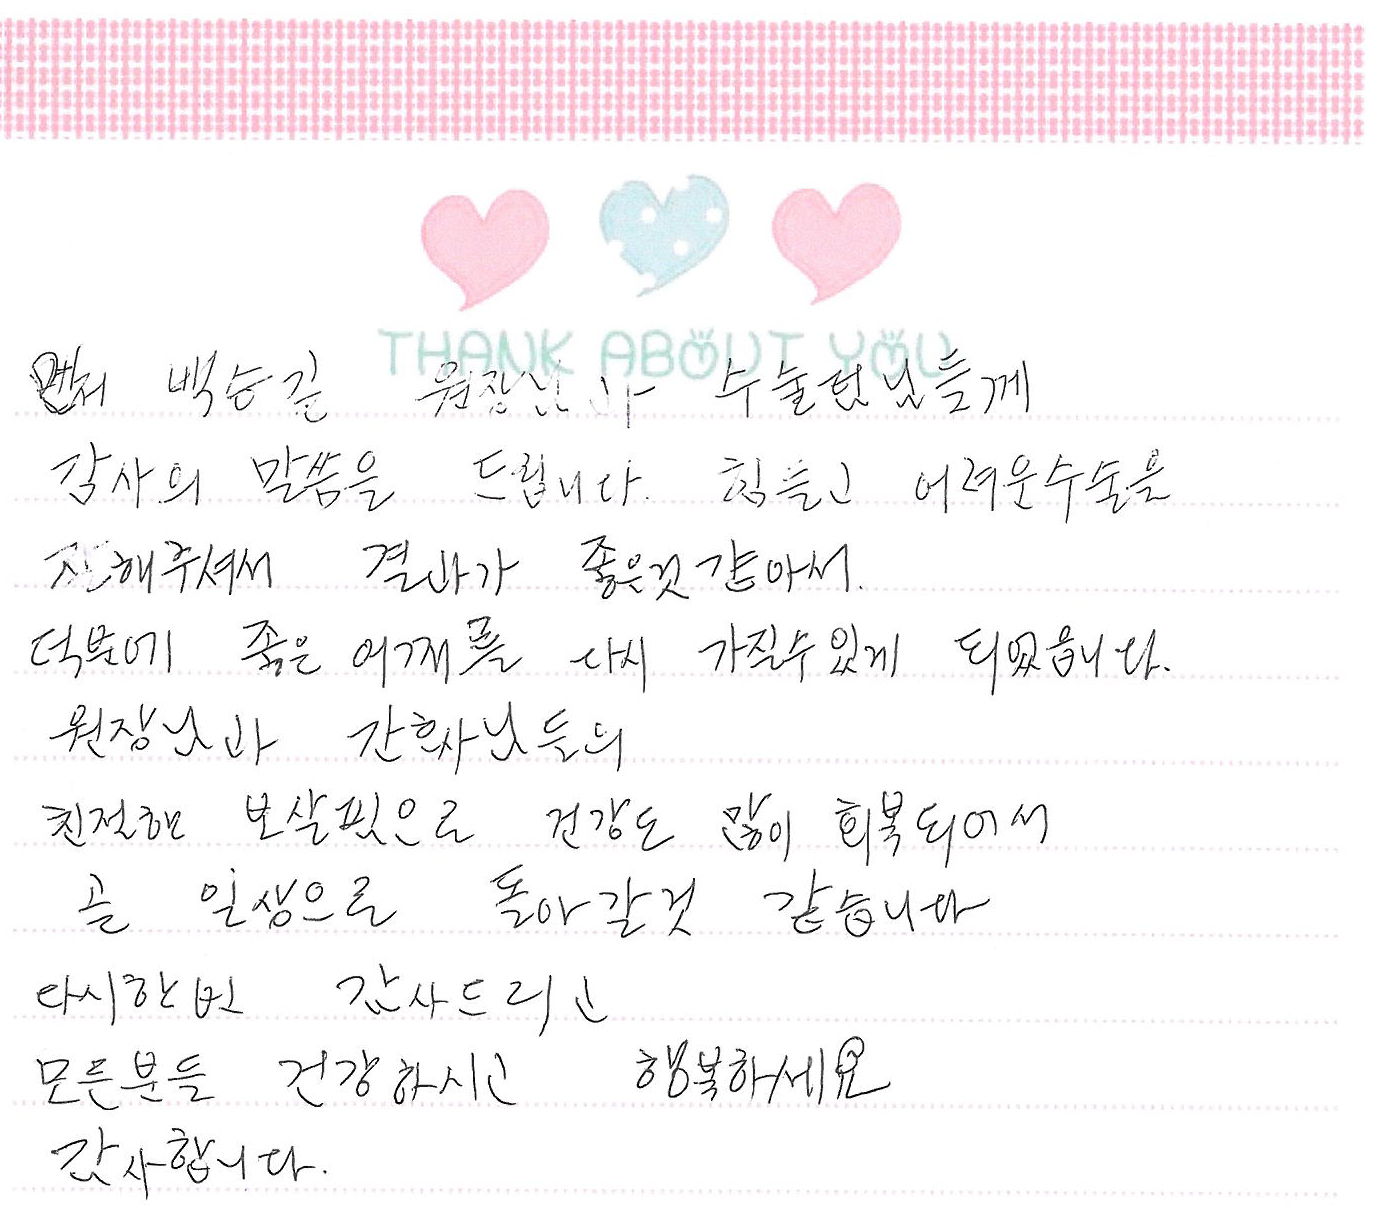 THANK ABOUT YOU
먼저 백승길 원장님과 수술팀님들께
감사의 말씀을 드립니다. 힘들고 어려운수술을
잘해주셔서 결과가 좋은것같아서.
덕분에 좋은 어깨를 다시 가질수있게 되었습니다.
원장님과 간호사님들의
친절한 보살핌으로 건강도 많이 회복되어서
곧 일상으로 돌아갈것 같습니다
다시한번 감사드리고
모든분들 건강하시고 행복하세요
감사합니다.